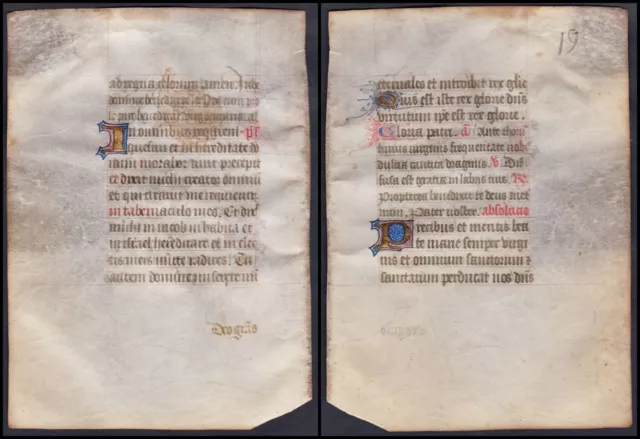 ad regna celorum amen. Iube
domine benedicere. Nos cum pro
le pia benedicat virgo
In omnibus requiem
quesivi et in hereditate do
mini morabor. tunc precepit
et dixit michi creator omniu
et qui creavit me requievit
in tabernaculo meo. Et dixit
michi in iacob inhabita et
in israel hereditare et in elec
tis meis mitte radices. Tu
autem domine miserere nri
Deo gras
19
eternales et introibit rex glie
Quis est iste rex glorie dns
virtutum ipe est rex glorie.
Gloria patri. a Ante thoru
huius virginis frequentate nobis
dulcia cantica dragmis. V Dif
fusa est gratia in labiis tuis. Re
Propterea benedixit te deus in et
num. Pater noster. absolutio
Precibus et meritis bea
te marie semper virgi
nis et omnium sanctorum et
sanctarum perducat nos dns